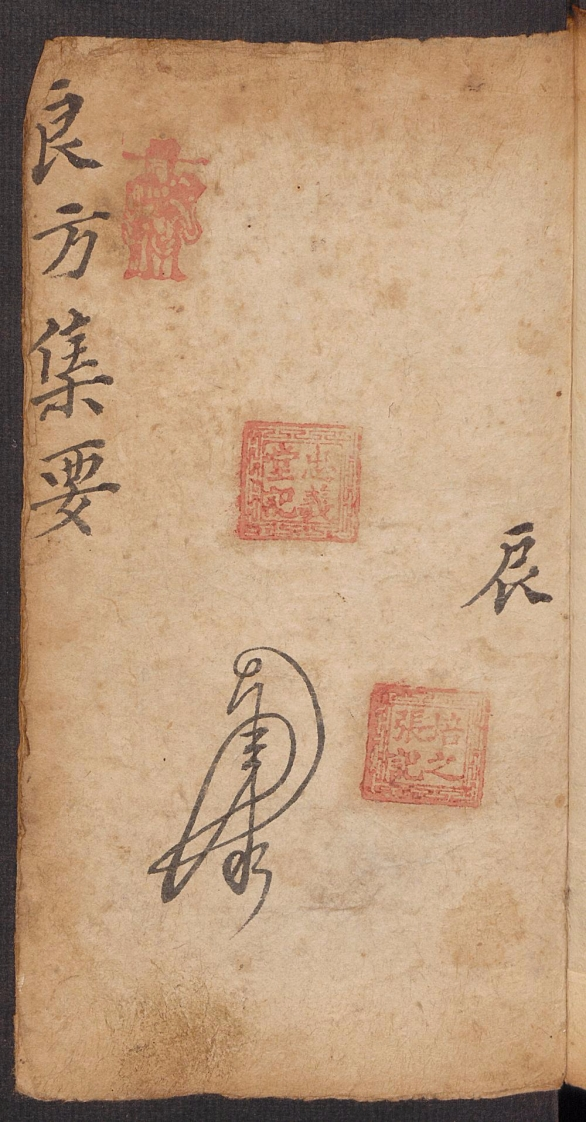 良方集要
忠義
堂記
辰
培之
張記